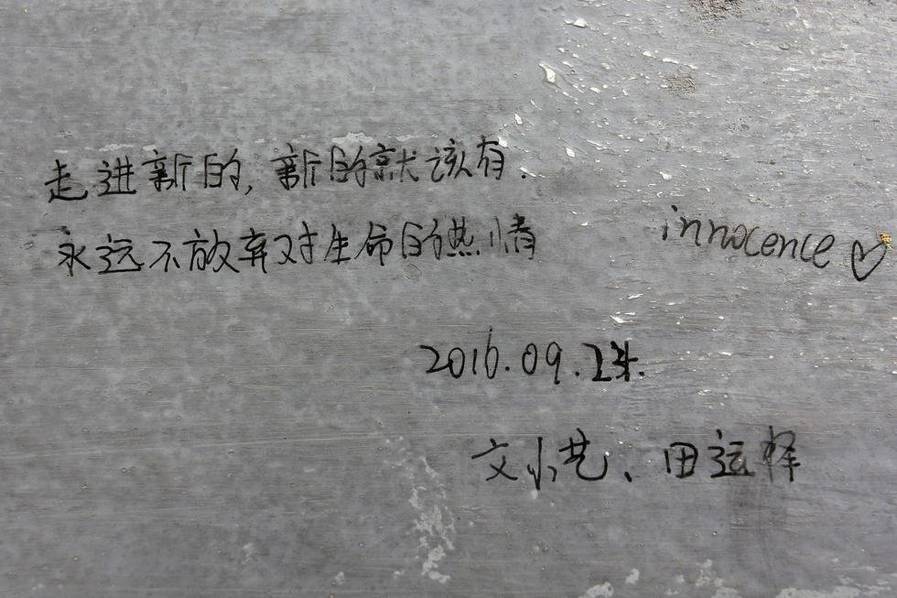 走进新的,新的就该有.
永远不放弃对生命的热情
innocence♡
2016.09.24.
文小艺、田运择